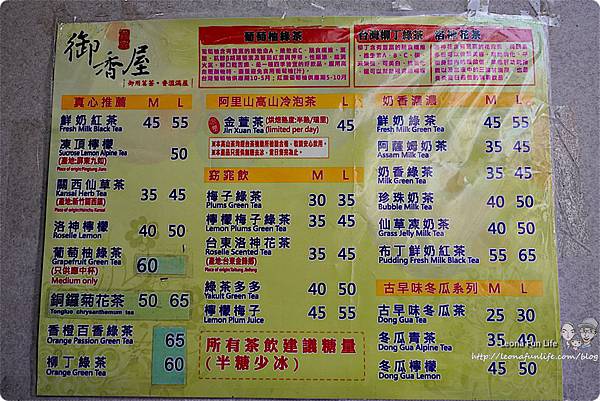 御香屋
御用茗茶・香溢滿屋
葡萄柚綠茶
台灣柳丁綠茶
洛神花茶
真心推薦 M L
鮮奶紅茶 45 55
Fresh Milk Black Tea
凍頂檸檬 50
Sucrose Lemon Alpine Tea
(產地:屏東九如)
Place of origin:Pingtung Jioru
關西仙草茶 35 45
Kansai Herb Tea
(產地:新竹關西鎮)
Place of origin:Hsinchu Kansai
洛神檸檬 40 50
Roselle Lemon
葡萄柚綠茶 60
Grapefruit Green Tea
(只供應中杯)
Medium only
銅鑼菊花茶 50 65
Tongluo chrysanthemum tea
香橙百香綠茶 65
Orange Passion Green Tea
柳丁綠茶 60
Orange Green Tea
阿里山高山冷泡茶 L
金萱茶(烘焙熟度:半熟/環肥) 45
Jin Xuan Tea (limited per day)
窈窕飲 M L
梅子綠茶 30 35
Plums Green Tea
檸檬梅子綠茶 35 45
Lemon Plums Green Tea
台東洛神花茶 35 45
Roselle Scented Tea
(產地:台東金鋒鄉)
Place of origin:Taitung Jinfeng
綠茶多多 40 50
Yakult Green Tea
檸檬梅子 45 55
Lemon Plum Juice
所有茶飲建議糖量
(半糖少冰)
奶香濃濃 M L
鮮奶綠茶 45 55
Fresh Milk Green Tea
阿薩姆奶茶 35 45
Assam Milk Tea
奶香綠茶 35 45
Milk Green Tea
珍珠奶茶 40 50
Bubble Milk Tea
仙草凍奶茶 40 50
Grass Jelly Milk Tea
布丁鮮奶紅茶 55 65
Pudding Fresh Milk Black Tea
古早味冬瓜系列 M L
古早味冬瓜茶 25 30
Dong Gua Tea
冬瓜青茶 35 40
Dong Gua Alpine Tea
冬瓜檸檬 45 50
Dong Gua Lemon
Leona Fun Life
http://leonafunlife.com/blog